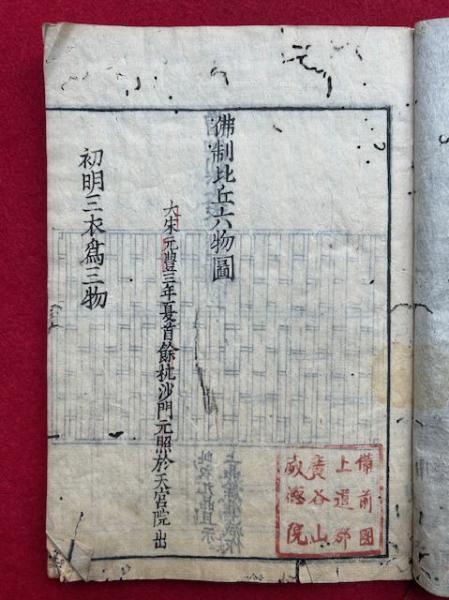 佛制比丘六物圖
大宋元豐三年夏首餘杭沙門元照於天宮院出
初明三衣爲三物
備前國
上道郡
廣谷山
威德院